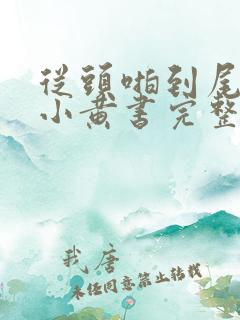 從頭啪到尾
小黃書完整
我唐
未經同意禁止轉載